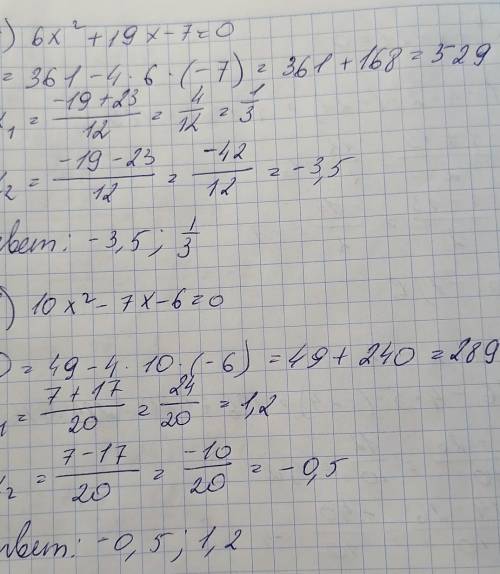 ) 6x² + 19x - 7 = 0
= 361 - 4 · 6 · (-7) = 361 + 168 = 529
x₁ = \frac{-19 + 23}{12} = \frac{4}{12} = \frac{1}{3}
x₂ = \frac{-19 - 23}{12} = \frac{-42}{12} = -3,5
твет: -3,5 ; \frac{1}{3}
) 10x² - 7x - 6 = 0
D = 49 - 4 · 10 · (-6) = 49 + 240 = 289
₁ = \frac{7 + 17}{20} = \frac{24}{20} = 1,2
x₂ = \frac{7 - 17}{20} = \frac{-10}{20} = -0,5
твет: -0,5 ; 1,2